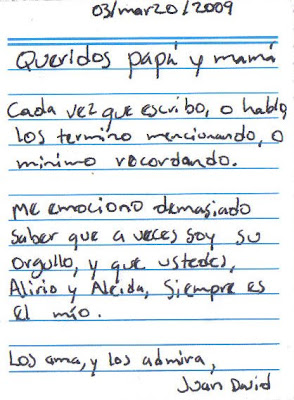 03/marzo/2009
Queridos papá y mamá
Cada vez que escribo, o hablo,
los termino mencionando, o
minimo recordando.
Me emociono demasiado
saber que a veces soy su
orgullo, y que ustedes,
Alirio y Aleida, siempre es
el mío.
Los ama, y los admira,
Juan David